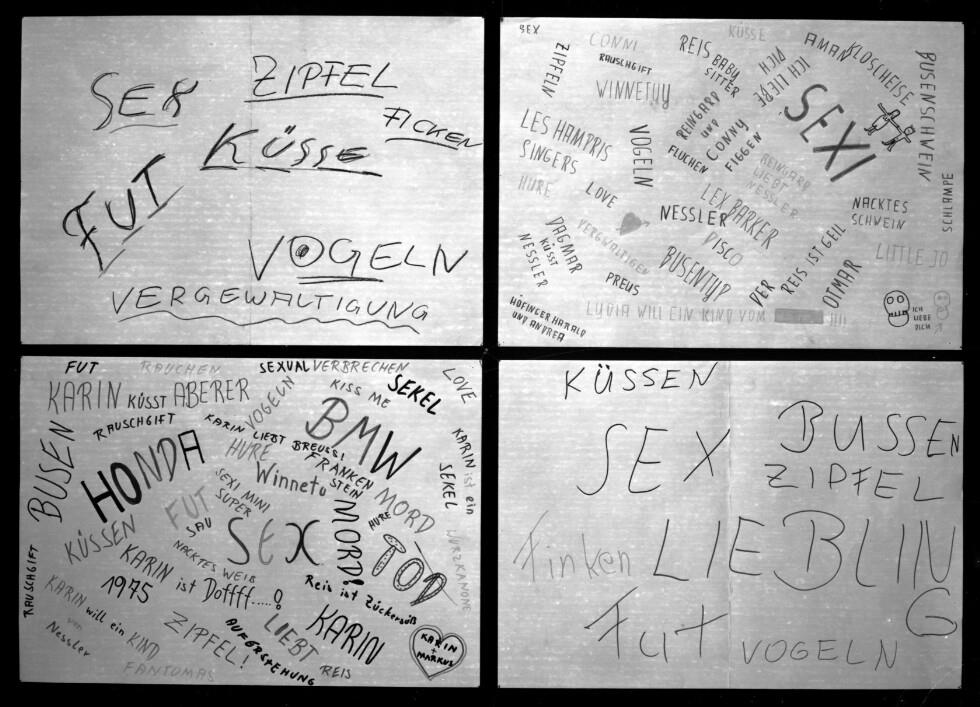 SEX
ZIPFEL
FICKEN
KÜSSE
FUT
VOGELN
VERGEWALTIGUNG
SEX
CONNI
KÜSSE
REIS BABY
SITTER
AMAN
KLOSCHEISE
ZIPFELN
RAUSCHGIFT
ICH LIEBE
DICH
BUSENSCHWEIN
WINNETUU
SEXI
LES HAMPRIS
SINGERS
VOGELN
REINGARD
UND
CONNY
FIGGEN
FLUCHEN
REINGARD
LIEBT
NESSLER
SCHLAMPE
HURE
LOVE
NESSLER
LEX BARKER
NACKTES
SCHWEIN
DAGMAR
KÜSST
NESSLER
VERGWALTIGEN
DISCO
LITTLE JO
BUSENTYP
DER
REIS IST GEIL
OTMAR
PREUS
HÖFINGER HARALD
UND ANDREA
LYDIA WILL EIN KIND VOM
!!!!
ICH
LIEBE
DICH
FUT
RAUCHEN
SEXUALVERBRECHEN
LOVE
KARIN KÜSST ABERER
VOGELN
KISS ME
SEKEL
RAUSCHGIFT
KARIN LIEBT BREUSSI
BMW
BUSEN
HONDA
HURE
FRANKEN
STEIN
KARIN ist ein
SEKEL
SEXI MINI
SUPER
Winnetu
MORD
FUT
SAU
SEX
MORD!
HURE
TOD
WURZKANONE
KÜSSEN
NACKTES WEIB
RAUSCHGIFT
KARIN ist Doffff.....!
Reis ist Zückersüß
1975
KARIN will ein KIND
von
Nessler
ZIPFEL!
AUFERSTEHUNG
LIEBT
KARIN
KARIN
+
MARKUS
FANTOMAS
REIS
KÜSSEN
SEX
BUSSEN
ZIPFEL
Finken
LIEBLING
Fut
VOGELN